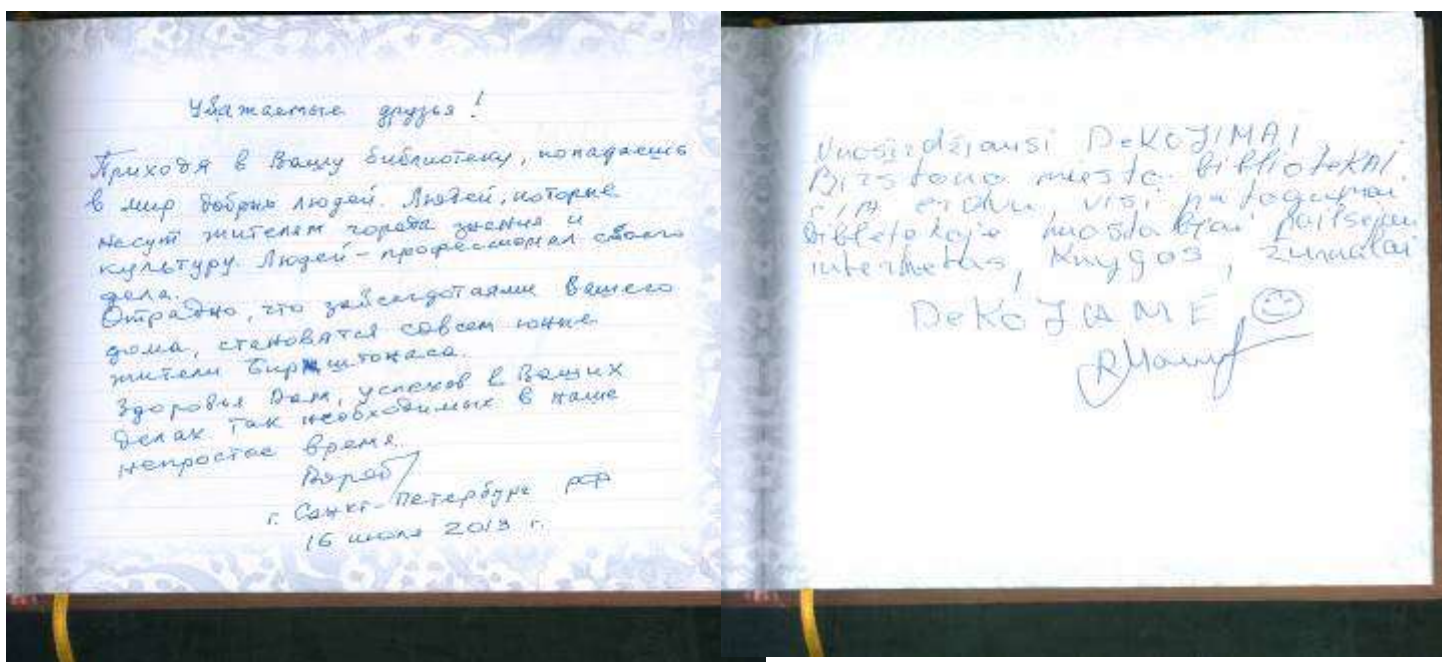 Уважаемые друзья!
Приходя в Вашу библиотеку, попадаешь
в мир добрых людей. Людей, которые
несут жителям города знания и
культуру. Людей - профессионал своего
дела.
Отрадно, что завсегдатаями Вашего
дома, становятся совсем юные
жители Бирштонаса.
Здоровья Вам, успехов в Ваших
делах так необходимых в наше
непростое время.
г. Санкт-Петербург РФ
16 июля 2013 г.
DėKOJIMAI
miesto bibliotekAI.
erdvu, visi patogumai
nuostabiai pailsėjau
internetas, Knygos, žurnalai
DėKOJAME